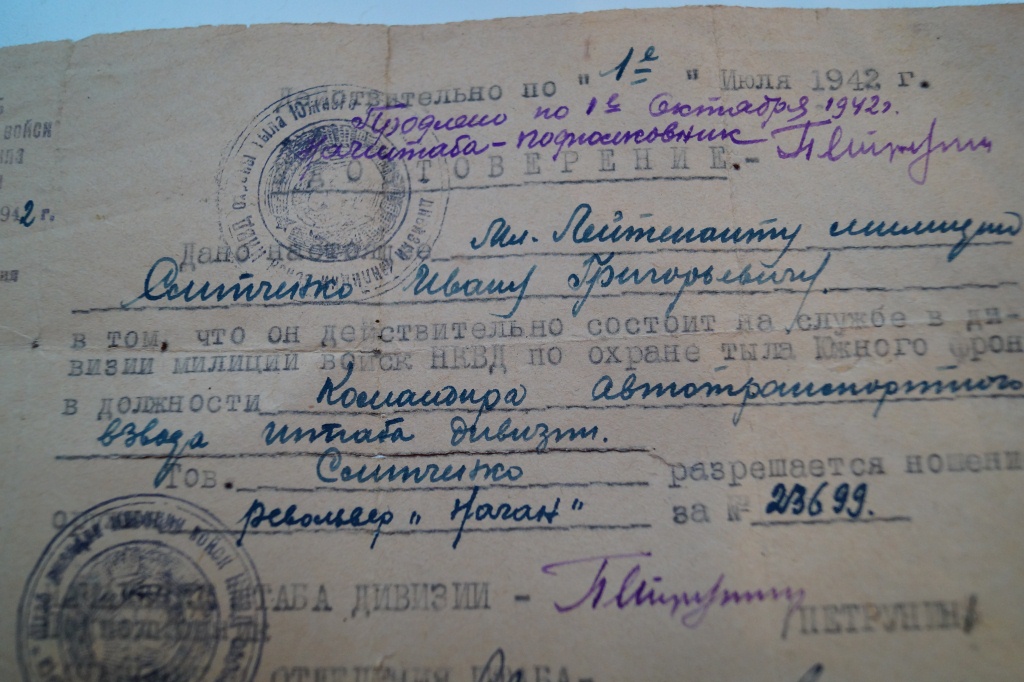 войск
942 г.
Действительно по " 1е " Июля 1942 г.
Продлено по 1е Октября 1942г.
Начштаба - подполковник
УДОСТОВЕРЕНИЕ.-
Дано настоящее Мл. Лейтенанту милиции
Ивану Григорьевичу.
в том, что он действительно состоит на службе в ди-
визии милиции войск НКВД по охране тыла Южного фрон
в должности Командира Автотранспортного
взвода штаба дивизии.
Тов. разрешается ношени
револьвер "Наган" за № 23699.
ТАБА ДИВИЗИИ -
/ПЕТРУНИН/
ОТДЕЛЕНИЯ